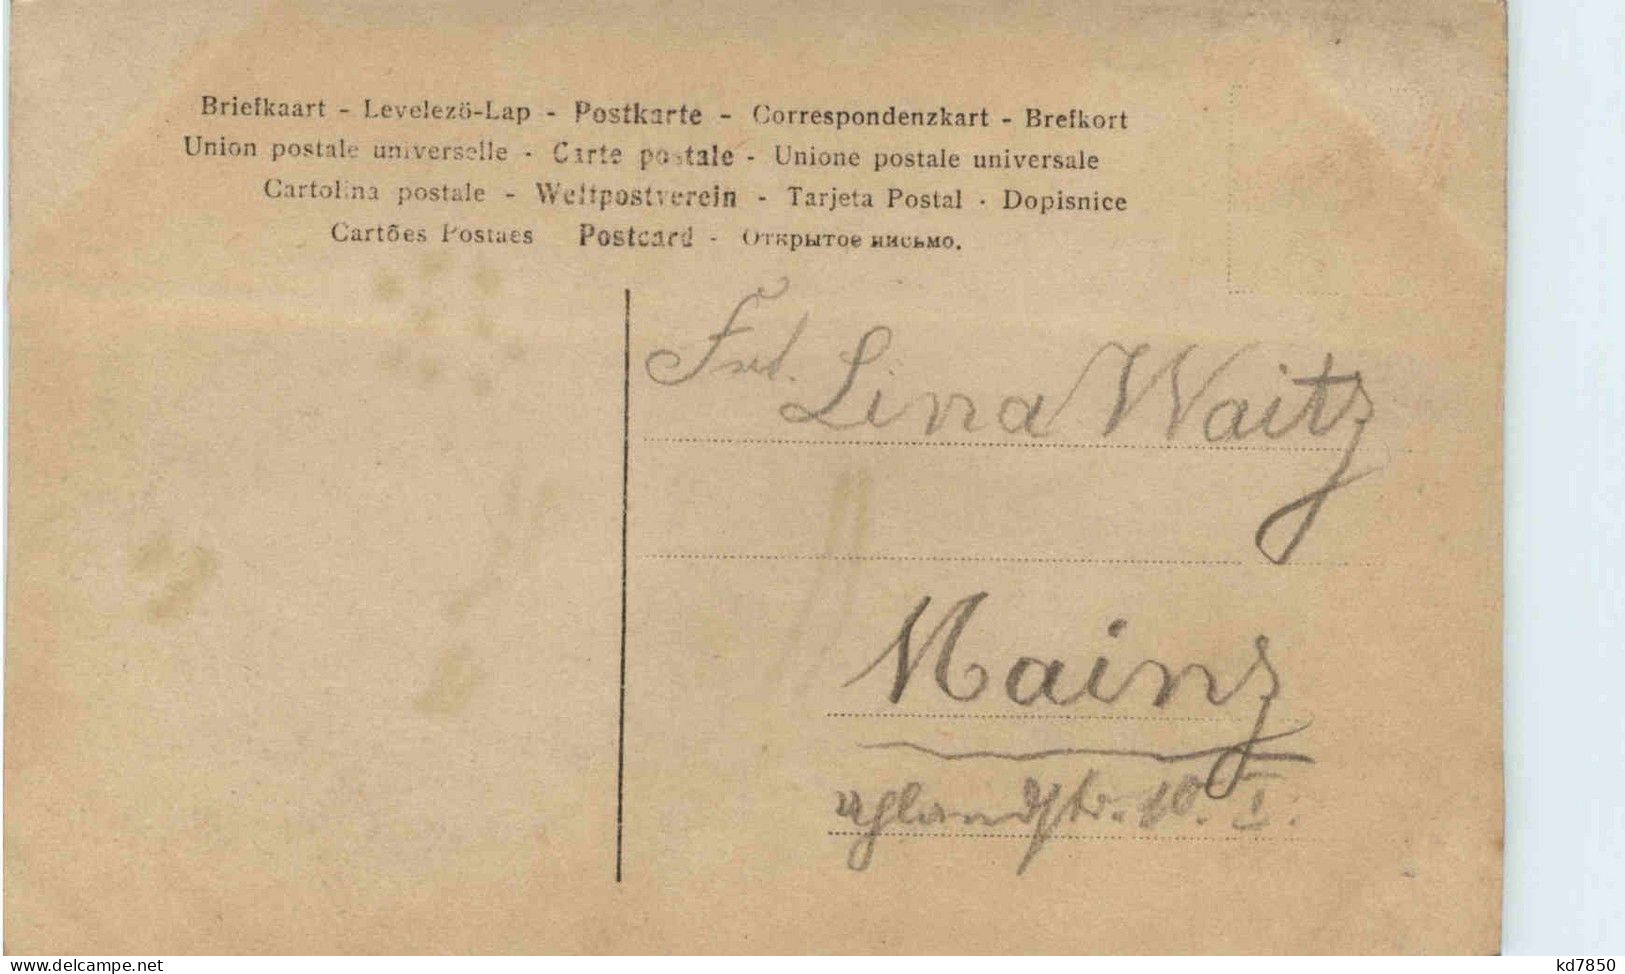 Briefkaart - Levelezö-Lap - Postkarte - Correspondenzkart - Brefkort
Union postale universelle - Carte postale - Unione postale universale
Cartolina postale - Weltpostverein - Tarjeta Postal - Dopisnice
Cartões Postaes Postcard - Открытое письмо.
Frl. Lina Waitz
Mainz
Uhlandstr. 10. I.
delcampe.net
kd7850